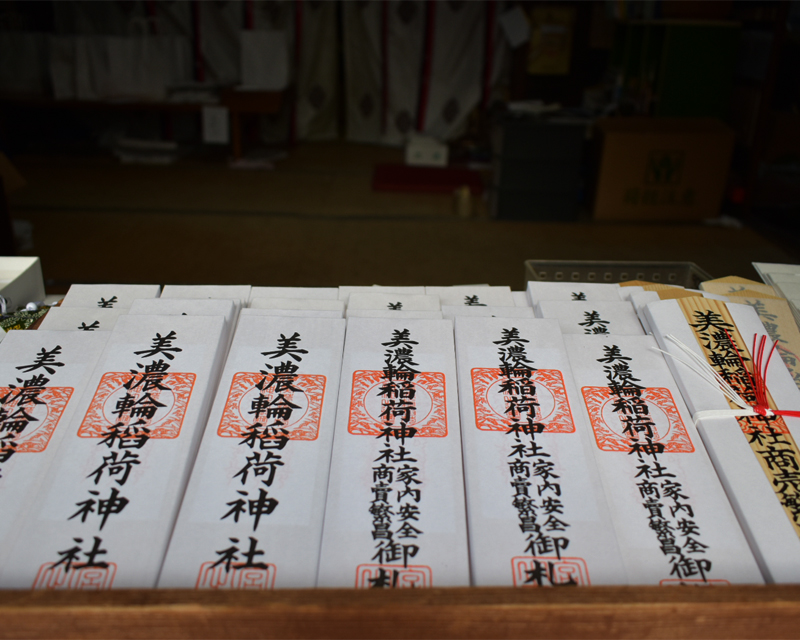 美濃輪稲荷
美濃輪稲荷神社
美濃輪稲荷神社
美濃輪稲荷神社
家内安全
商賣繁昌
御札
美濃輪稲荷神社
家内安全
商賣繁昌
御札
美濃輪稲荷神社
家内安全
商賣繁昌
御
美濃輪
神社商売繁
美
美
美
美
美濃